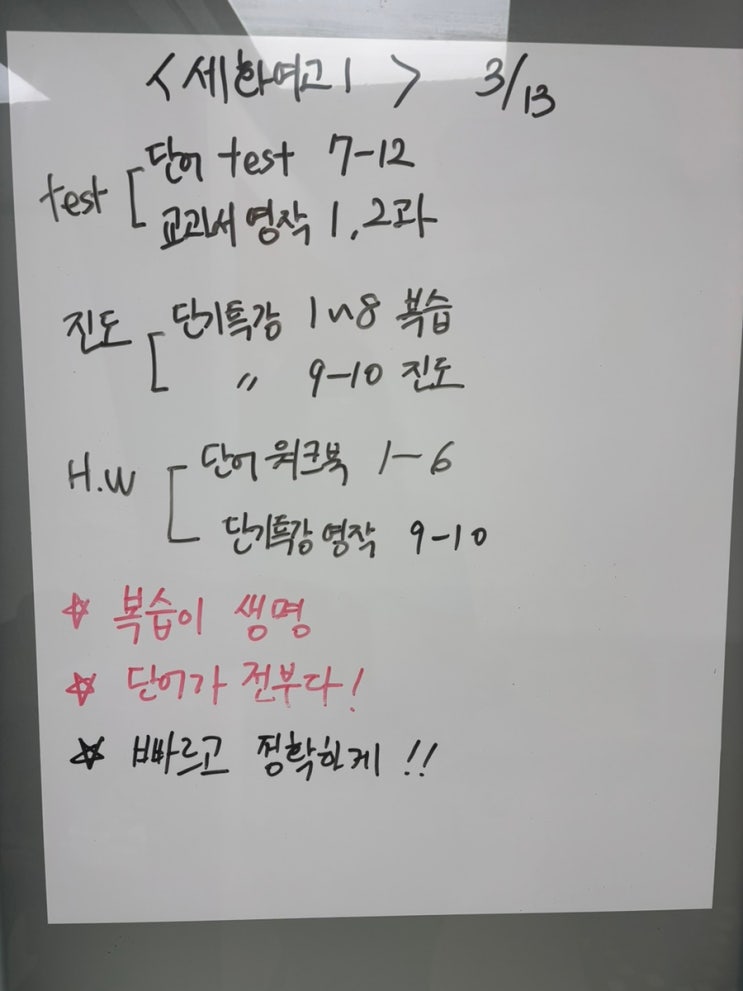 <세화여고1> 3/13
test [ 단어 test 7-12
교과서 영작 1, 2과
진도 [ 단기특강 1~8 복습
〃 9-10 진도
H.W [ 단어 워크북 1-6
단기특강 영작 9-10
☆ 복습이 생명
☆ 단어가 전부다!
☆ 빠르고 정확하게!!